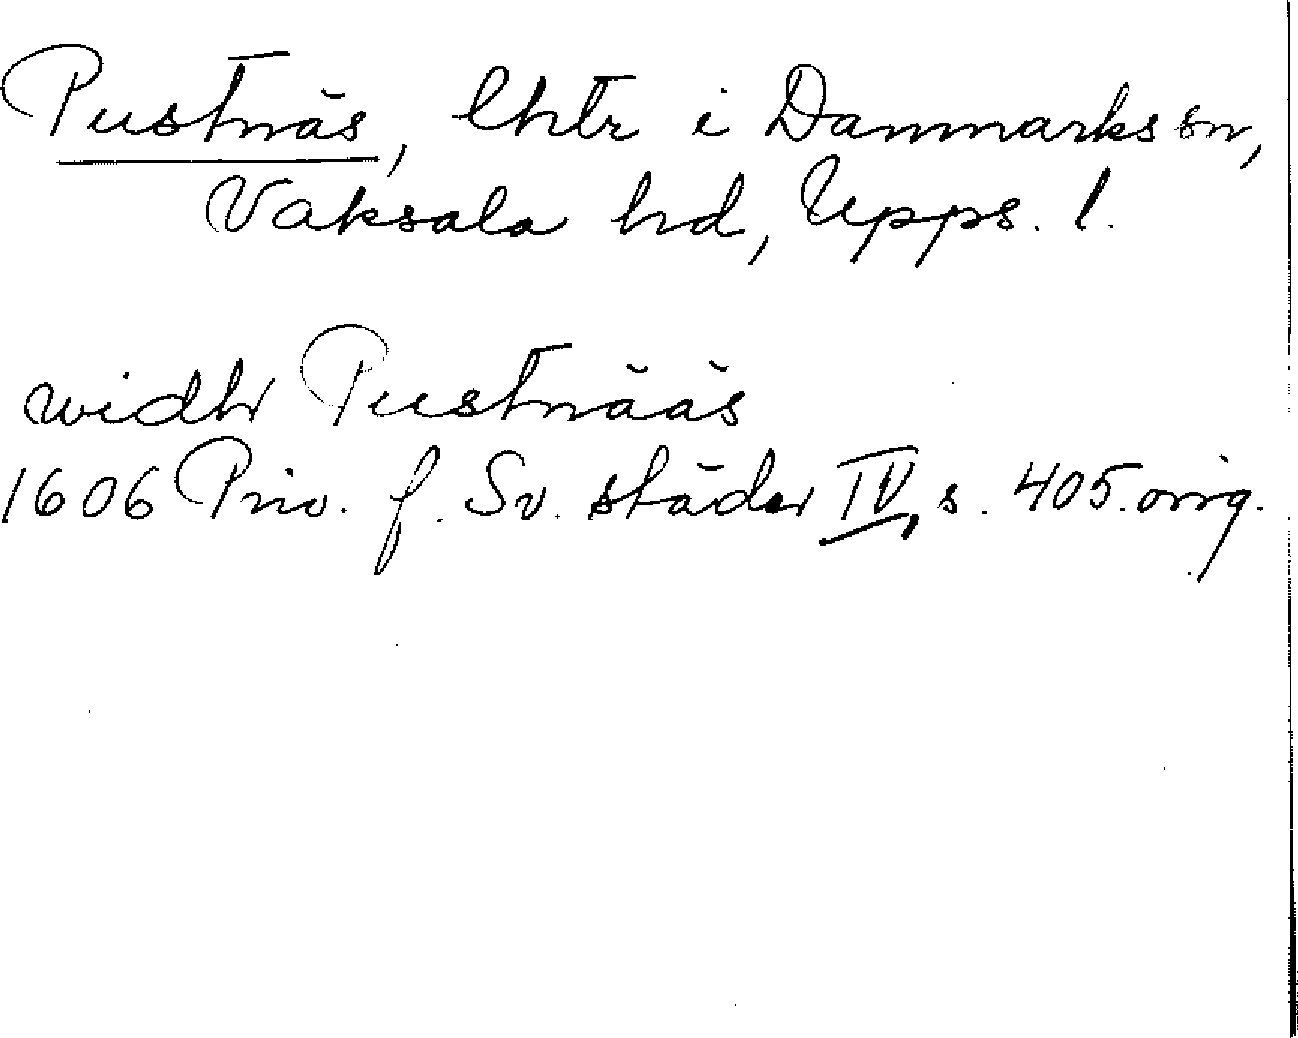 Pustnäs, lhtr i Danmarks sn,
Vaksala hd, Upps. l.
widhr Pustnääs
1606 Priv. f. Sv. städer IV, s. 405. orig.